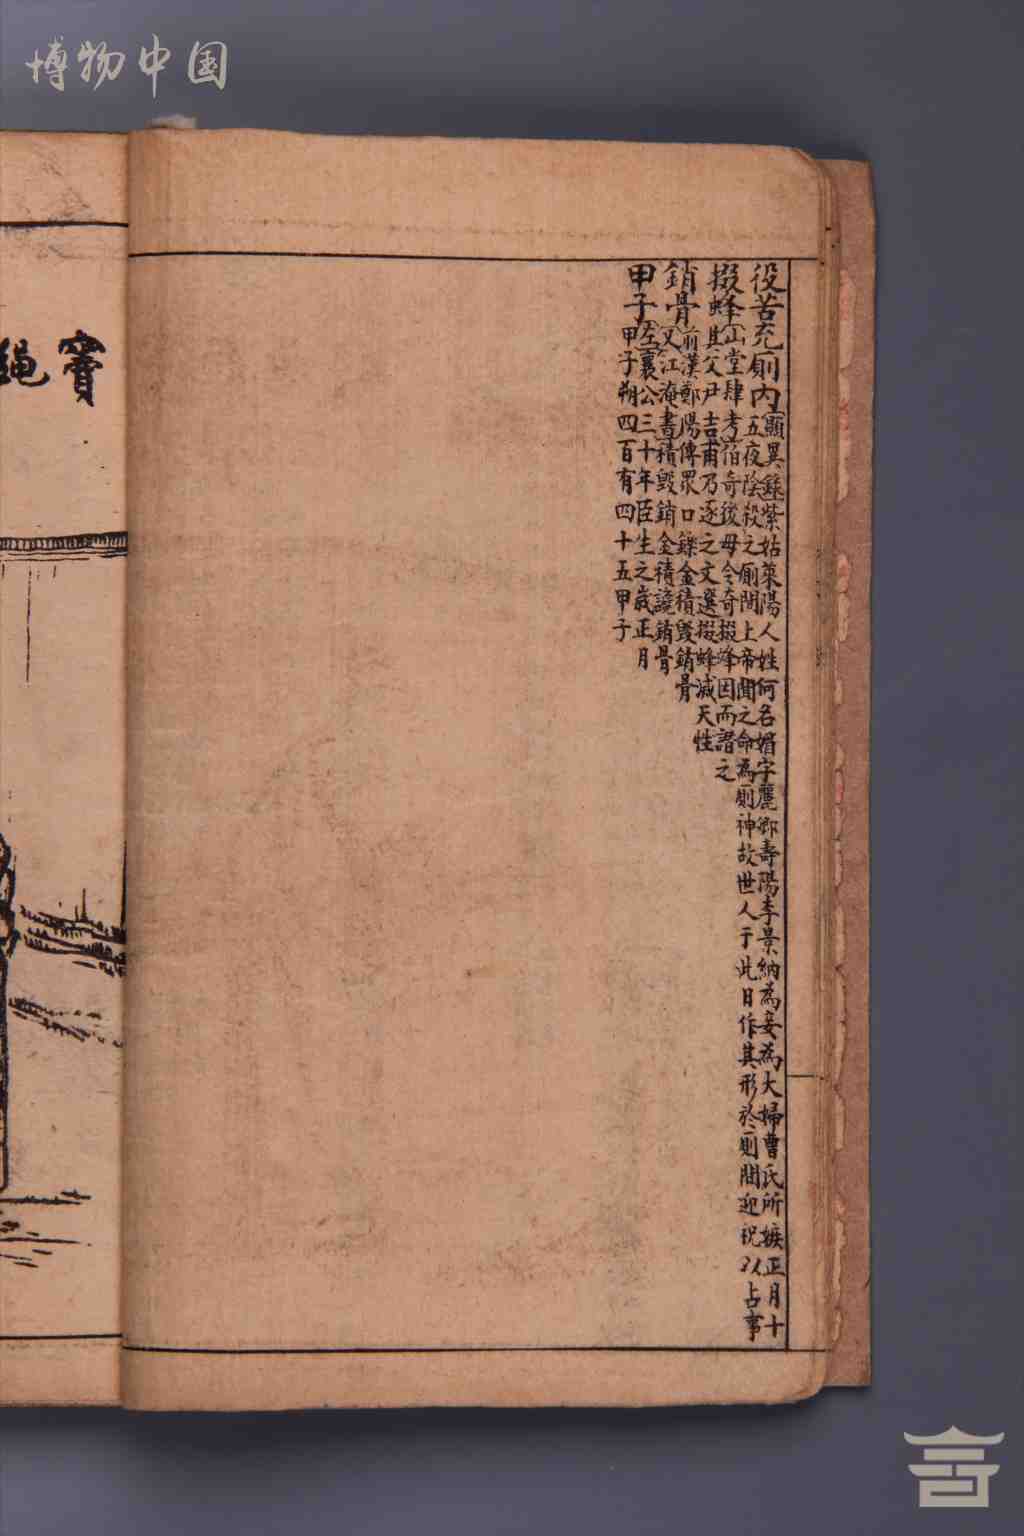 博物中国
役苦充厠內顯異錄紫姑萊陽人姓何名媚字麗卿壽陽李景納為妾為大婦曹氏所嫉正月十
五夜陰殺之厠間上帝聞之命為厠神故世人于此日作其形於厠間迎祝以占事
掇蜂山堂肆考伯奇後母令奇掇蜂因而譖之
其父尹吉甫乃逐之文選掇蜂滅天性
銷骨前漢鄒陽傳眾口鑠金積毀銷骨
又江淹書積毀銷金積讒銷骨
甲子左襄公三十年臣生之歲正月
甲子朔四百有四十五甲子
竇